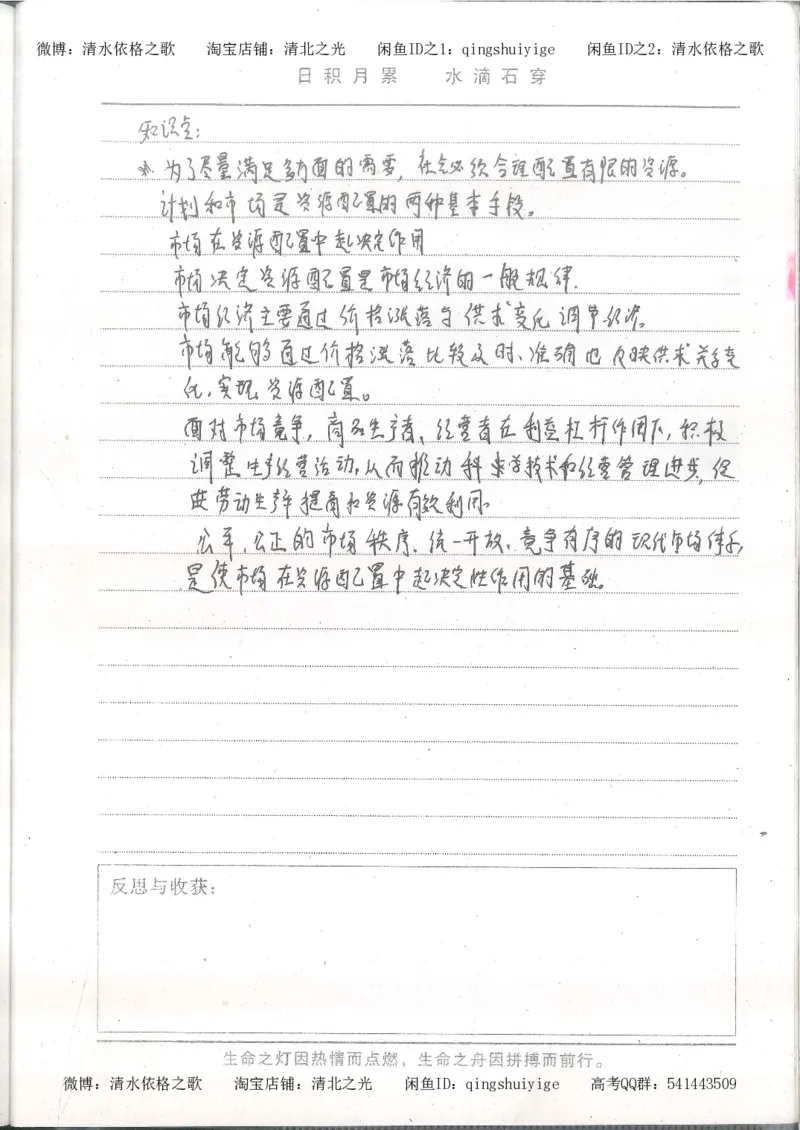 微博：清水依格之歌 淘宝店铺：清北之光 闲鱼ID之1：qingshuiyige 闲鱼ID之2：清水依格之歌
日积月累 水滴石穿
知识点：
为了尽量满足多方面的需要，社会必须合理配置有限的资源。
计划和市场是资源配置的两种基本手段。
市场在资源配置中起决定作用
市场决定资源配置是市场经济的一般规律.
市场经济主要通过价格涨落与供求变化调节经济。
市场能够通过价格涨落比较及时、准确地反映供求关系变
化，实现资源配置。
面对市场竞争，商品生产者、经营者在利益杠杆作用下，积极
调整生产经营活动，从而推动科学技术和经营管理进步，促
进劳动生产率提高和资源有效利用。
公平、公正的市场秩序，统一开放、竞争有序的现代市场体系，
是使市场在资源配置中起决定性作用的基础。
反思与收获：
生命之灯因热情而点燃，生命之舟因拼搏而前行。
微博：清水依格之歌 淘宝店铺：清北之光 闲鱼ID：qingshuiyige 高考QQ群：541443509